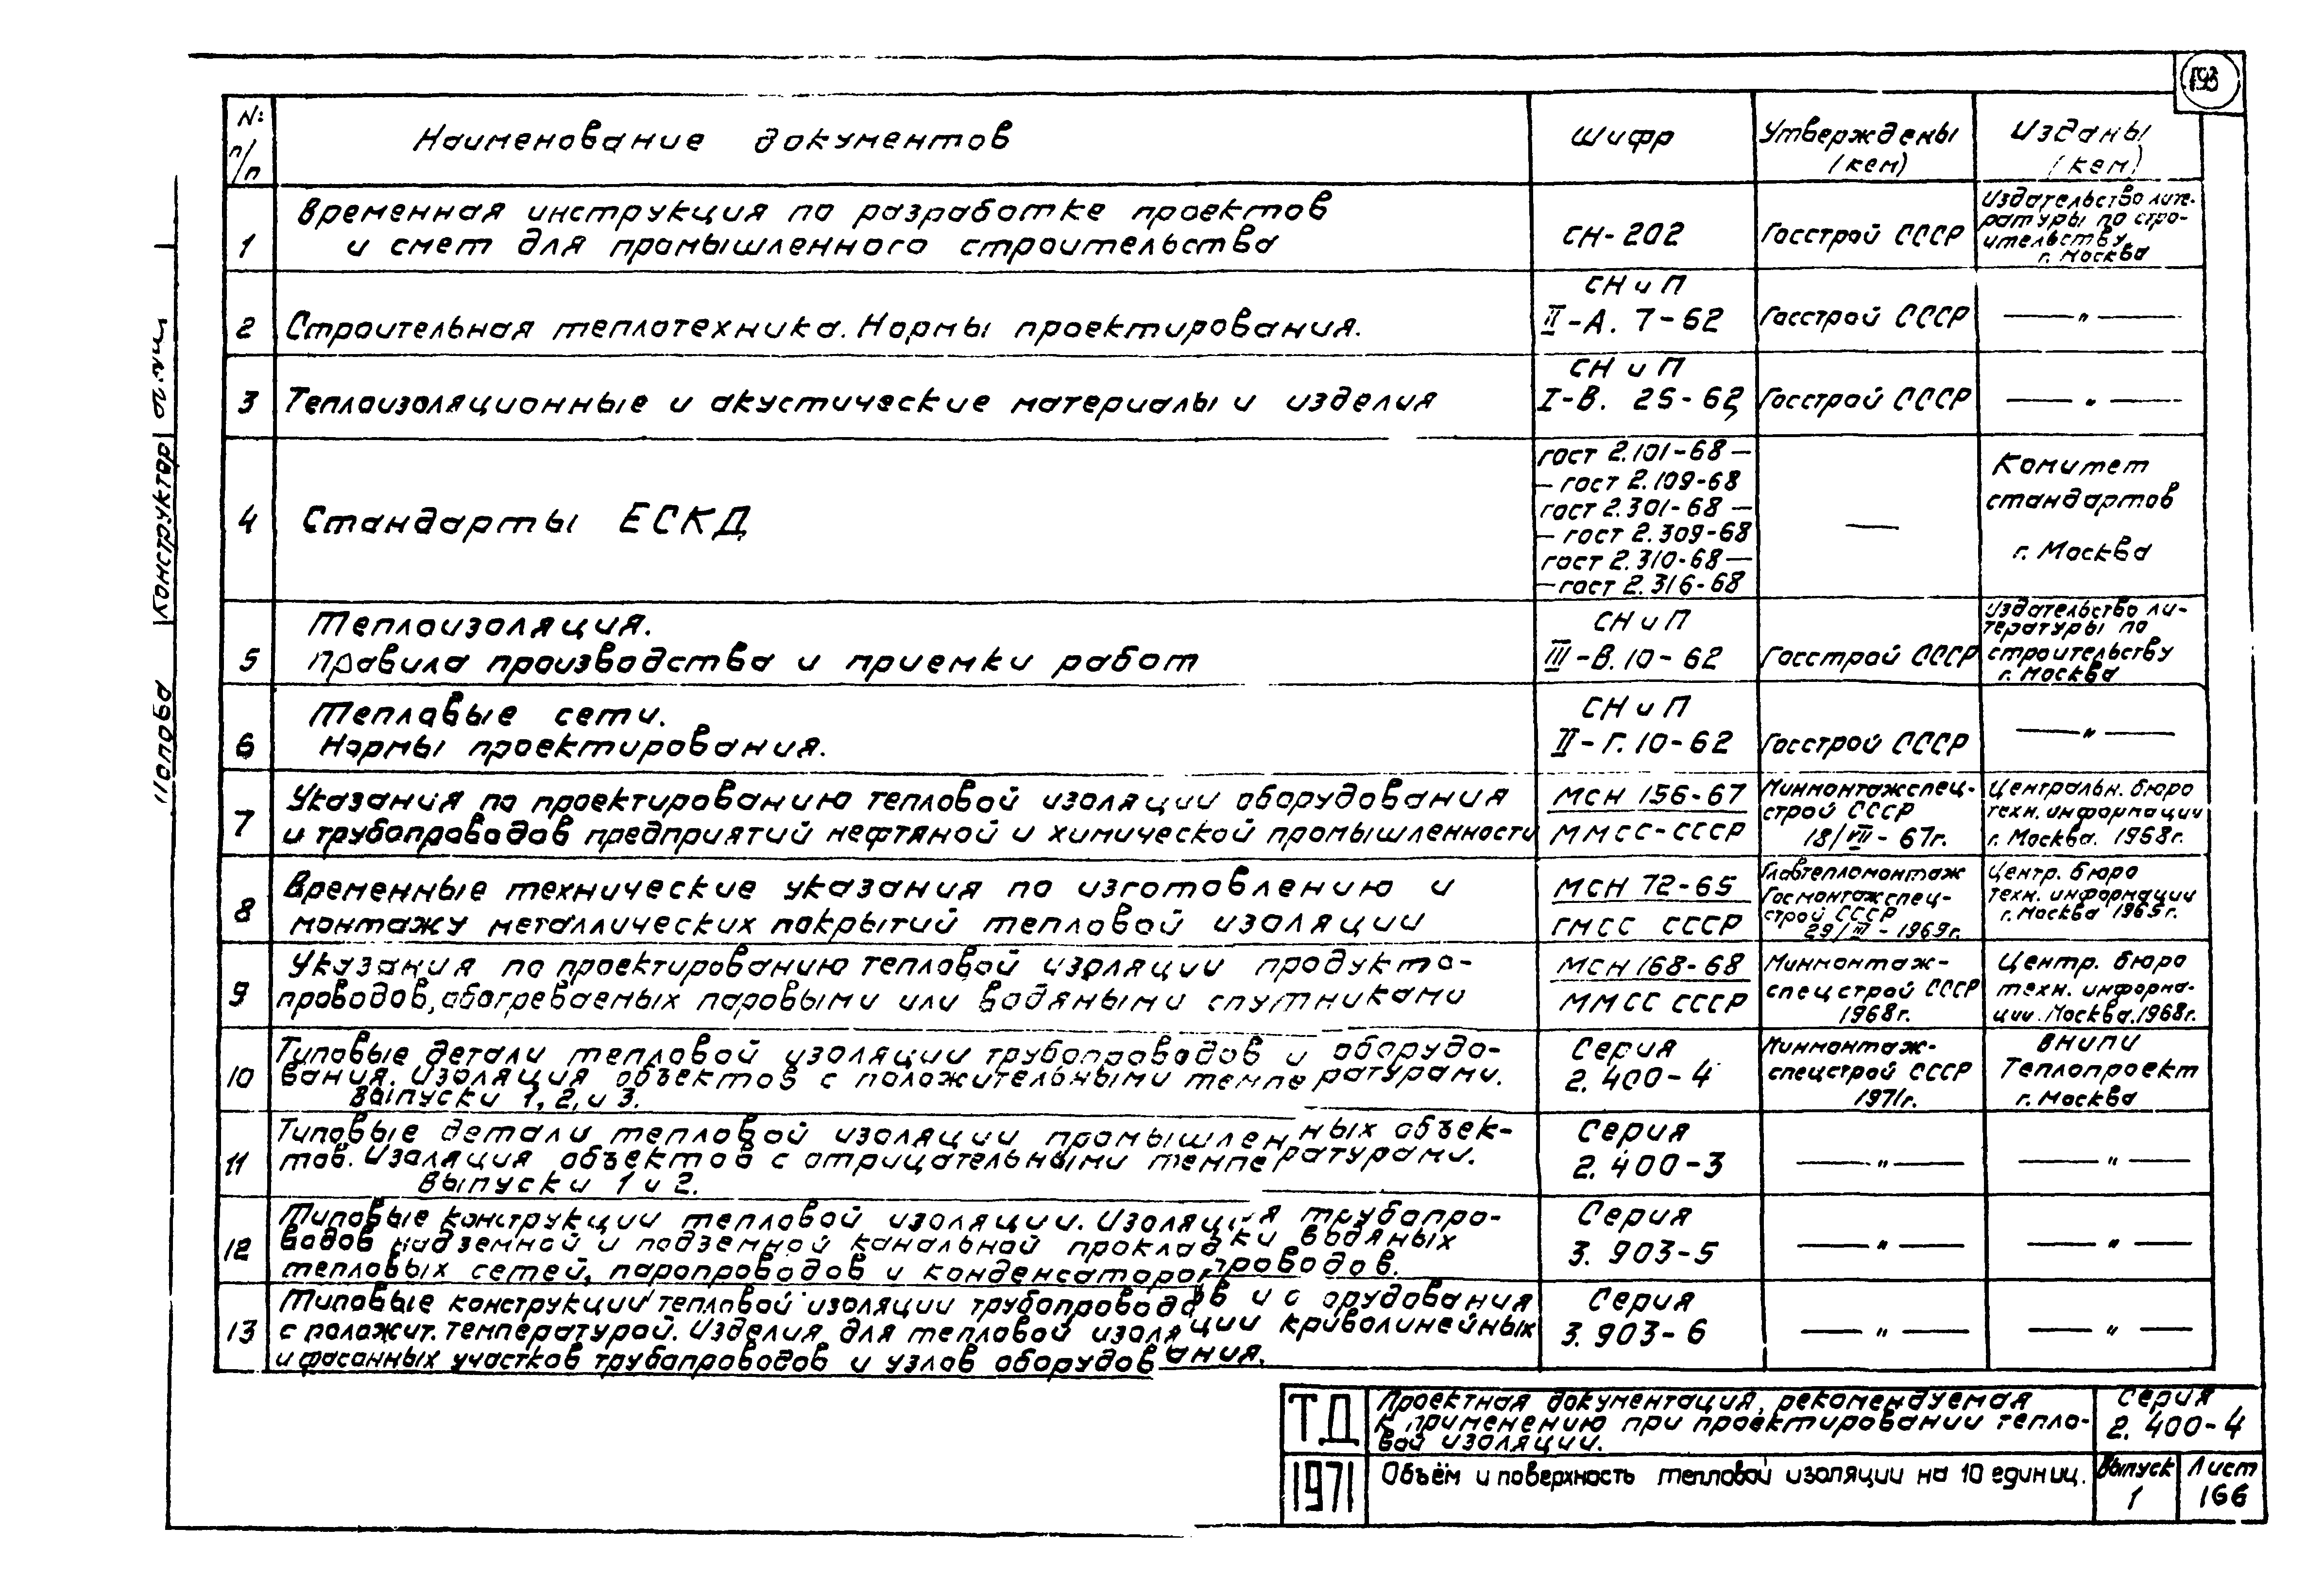 193
№ п/п Наименование документов Шифр Утверждены (кем) Изданы (кем)
1 Временная инструкция по разработке проектов
и смет для промышленного строительства
СН-202
Госстрой СССР
Издательство лите-
ратуры по стро-
ительству
г. Москва
2 Строительная теплотехника. Нормы проектирования.
СН и П
II-А. 7-62
Госстрой СССР
— " —
3 Теплоизоляционные и акустические материалы и изделия
СН и П
I-В. 25-62
Госстрой СССР
— " —
4 Стандарты ЕСКД
гост 2.101-68 —
— гост 2.109-68
гост 2.301-68 —
— гост 2.309-68
гост 2.310-68 —
— гост 2.316-68
—
Комитет
стандартов
г. Москва
5 Теплоизоляция.
Правила производства и приемки работ
СН и П
III-В.10-62
Госстрой СССР
Издательство ли-
тературы по
строительству
г. Москва
6 Тепловые сети.
Нормы проектирования.
СН и П
II-Г.10-62
Госстрой СССР
— " —
7 Указания по проектированию тепловой изоляции оборудования
и трубопроводов предприятий нефтяной и химической промышленности
МСН 156-67
ММСС-СССР
Минмонтажспец-
строй СССР
18/VIII-67г.
Центральн. бюро
техн. информации
г. Москва. 1968г.
8 Временные технические указания по изготовлению и
монтажу металлических покрытий тепловой изоляции
МСН 72-65
ГМСС СССР
Главтепломонтаж
Госмонтажспец-
строй СССР
29/III-1969г.
Центр. бюро
техн. информации
г. Москва 1965г.
9 Указания по проектированию тепловой изоляции продукто-
проводов, обогреваемых паровыми или водяными спутниками
МСН 168-68
ММСС СССР
Минмонтаж-
спецстрой СССР
1968г.
Центр. бюро
техн. информа-
ции. Москва. 1968г.
10 Типовые детали тепловой изоляции трубопроводов и оборудо-
вания. Изоляция объектов с положительными температурами.
Выпуски 1, 2, и 3.
Серия
2.400-4
Минмонтаж-
спецстрой СССР
1971г.
ВНИПИ
Теплопроект
г. Москва
11 Типовые детали тепловой изоляции промышленных объек-
тов. Изоляция объектов с отрицательными температурами.
Выпуски 1 и 2.
Серия
2.400-3
— " —
— " —
12 Типовые конструкции тепловой изоляции. Изоляция трубопро-
водов надземной и подземной канальной прокладки водяных
тепловых сетей, паропроводов и конденсаторопроводов.
Серия
3. 903-5
— " —
— " —
13 Типовые конструкции тепловой изоляции трубопроводов и о орудования
с положит. температурой. Изделия для тепловой изоляции криволинейных
и фасонных участков трубопроводов и узлов оборудования.
Серия
3. 903-6
— " —
— " —
ТД
1971
Проектная документация, рекомендуемая
к применению при проектировании тепло-
вой изоляции.
Серия
2. 400-4
Объём и поверхность тепловой изоляции на 10 единиц.
Выпуск
1
Лист
166
Конструктор
Попова